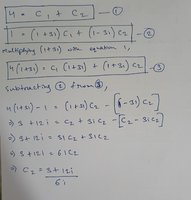 4 = C₁ + C₂ — ①
1 = (1+3i) C₁ + (1-3i) C₂ — ②
Multiplying (1+3i) with equation 1,
4(1+3i) = C₁ (1+3i) + (1+3i) C₂ — ③
Subtracting ② from ③,
4(1+3i) - 1 = (1+3i) C₂ - [(1-3i) C₂]
⇒ 3 + 12i = C₂ + 3i C₂ - [C₂ - 3i C₂]
⇒ 3 + 12i = 3i C₂ + 3i C₂
⇒ 3 + 12i = 6i C₂
⇒ C₂ = 3 + 12i / 6i